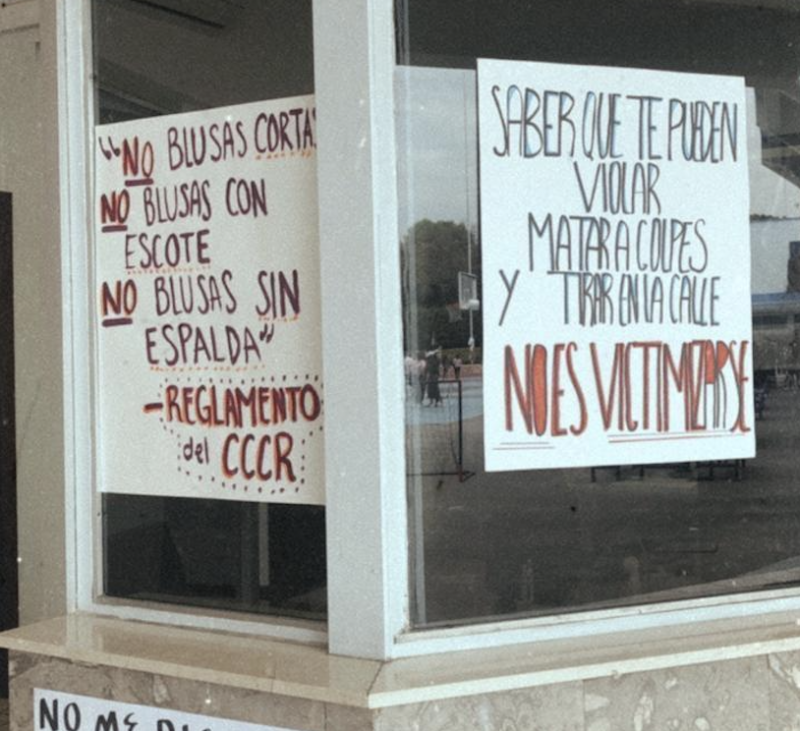 "NO BLUSAS CORTAS
NO BLUSAS CON
ESCOTE
NO BLUSAS SIN
ESPALDA"
-REGLAMENTO
del CCCR
SABER QUE TE PUEDEN
VIOLAR
MATAR A GOLPES
Y TIRAR EN LA CALLE
NO ES VICTIMIZARSE
NO ME